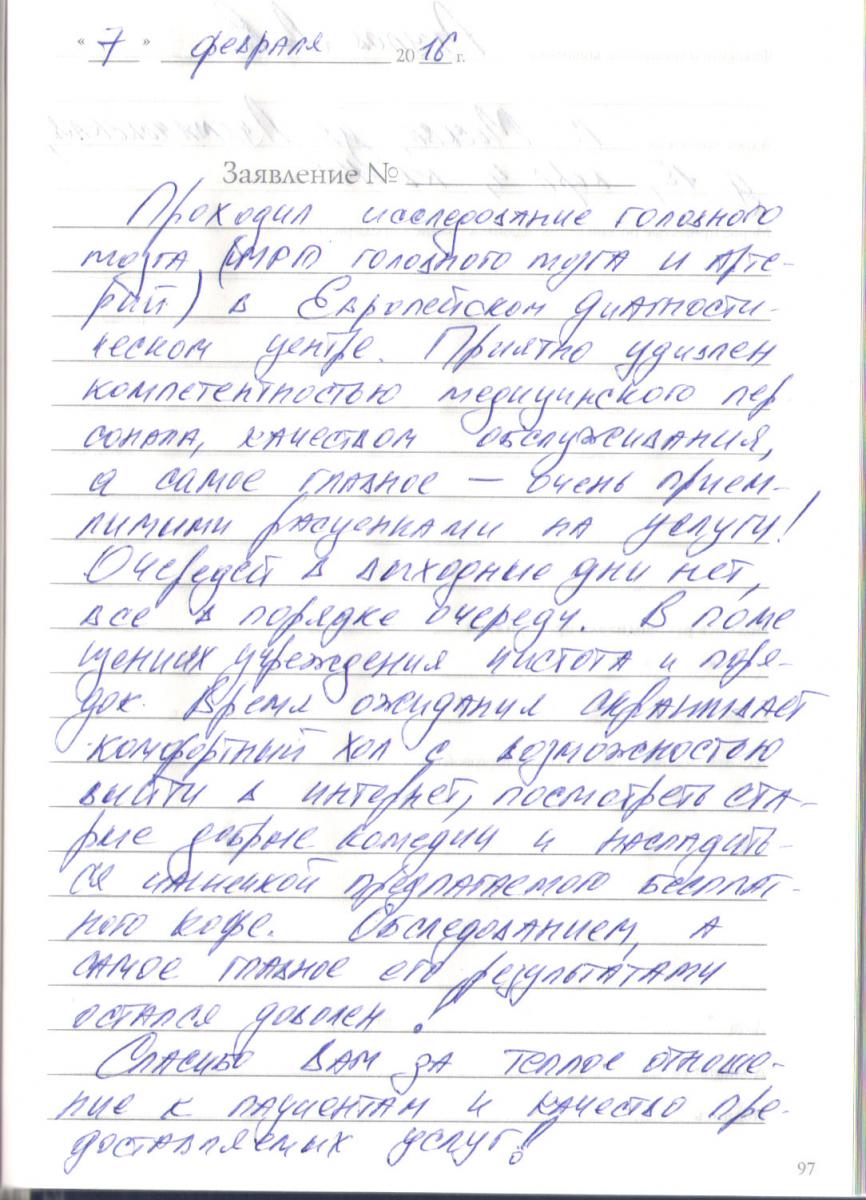 " 7 " февраля 2016 г.
Заявление №
Проходил исследование головного
мозга (МРТ головного мозга и арте-
рий) в Европейском диагности-
ческом центре. Приятно удивлен
компетентностью медицинского пер
сонала, качеством обслуживания,
а самое главное — очень прием-
лимыми расценками на услуги!
Очередей в выходные дни нет,
все в порядке очереди. В поме
щениях учреждения чистота и поря-
док. Время ожидания скрашивает
комфортный хол с возможностью
выйти в интернет, посмотреть ста-
рые добрые комедии и насладить-
ся чашечкой предлагаемого бесплат-
ного кофе. Обследованием, а
самое главное его результатами
остался доволен!
Спасибо Вам за теплое отноше-
ние к пациентам и качество пре-
доставляемых услуг!
97